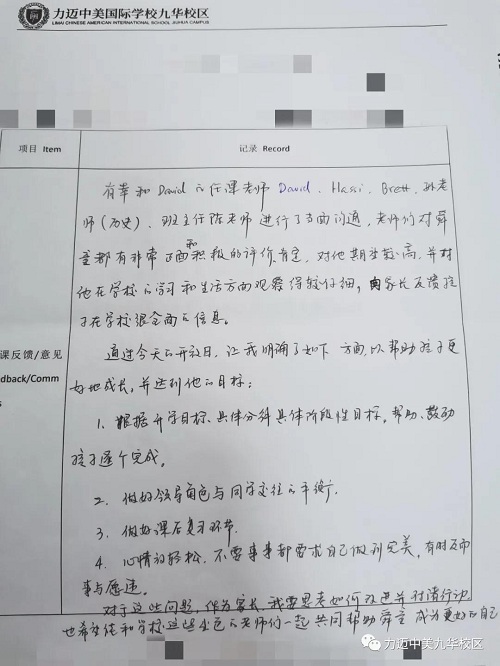 力迈中美国际学校九华校区
LIMAI CHINESE AMERICAN INTERNATIONAL SCHOOL JIUHUA CAMPUS
项目 Item
记录 Record
有幸和David的任课老师David、Hassi、Brett、孙老
师(历史)、班主任陈老师进行了当面沟通，老师们对舜
童都有非常正面和积极的评价肯定，对他期望较高，并对
他在学校的学习和生活方面观察得较仔细，向家长反馈孩
子在学校很全面的信息。
课反馈/意见
dback/Comm
s
通过今天的开放日，让我明确了如下方面，以帮助孩子更
好地成长，并达到他的目标：
1、根据升学目标、具体分科具体阶段性目标，帮助、鼓励
孩子逐个完成。
2、做好领导角色与同学交往的平衡。
3、做好课后复习环节。
4、心情放轻松，不要事事都要求自己做到完美，有时反而
事与愿违。
对于这些问题，作为家长，我要思考如何改进并付诸行动
也希望能和学校这些出色的老师们一起共同帮助舜童成为更好的自己
力迈中美九华校区